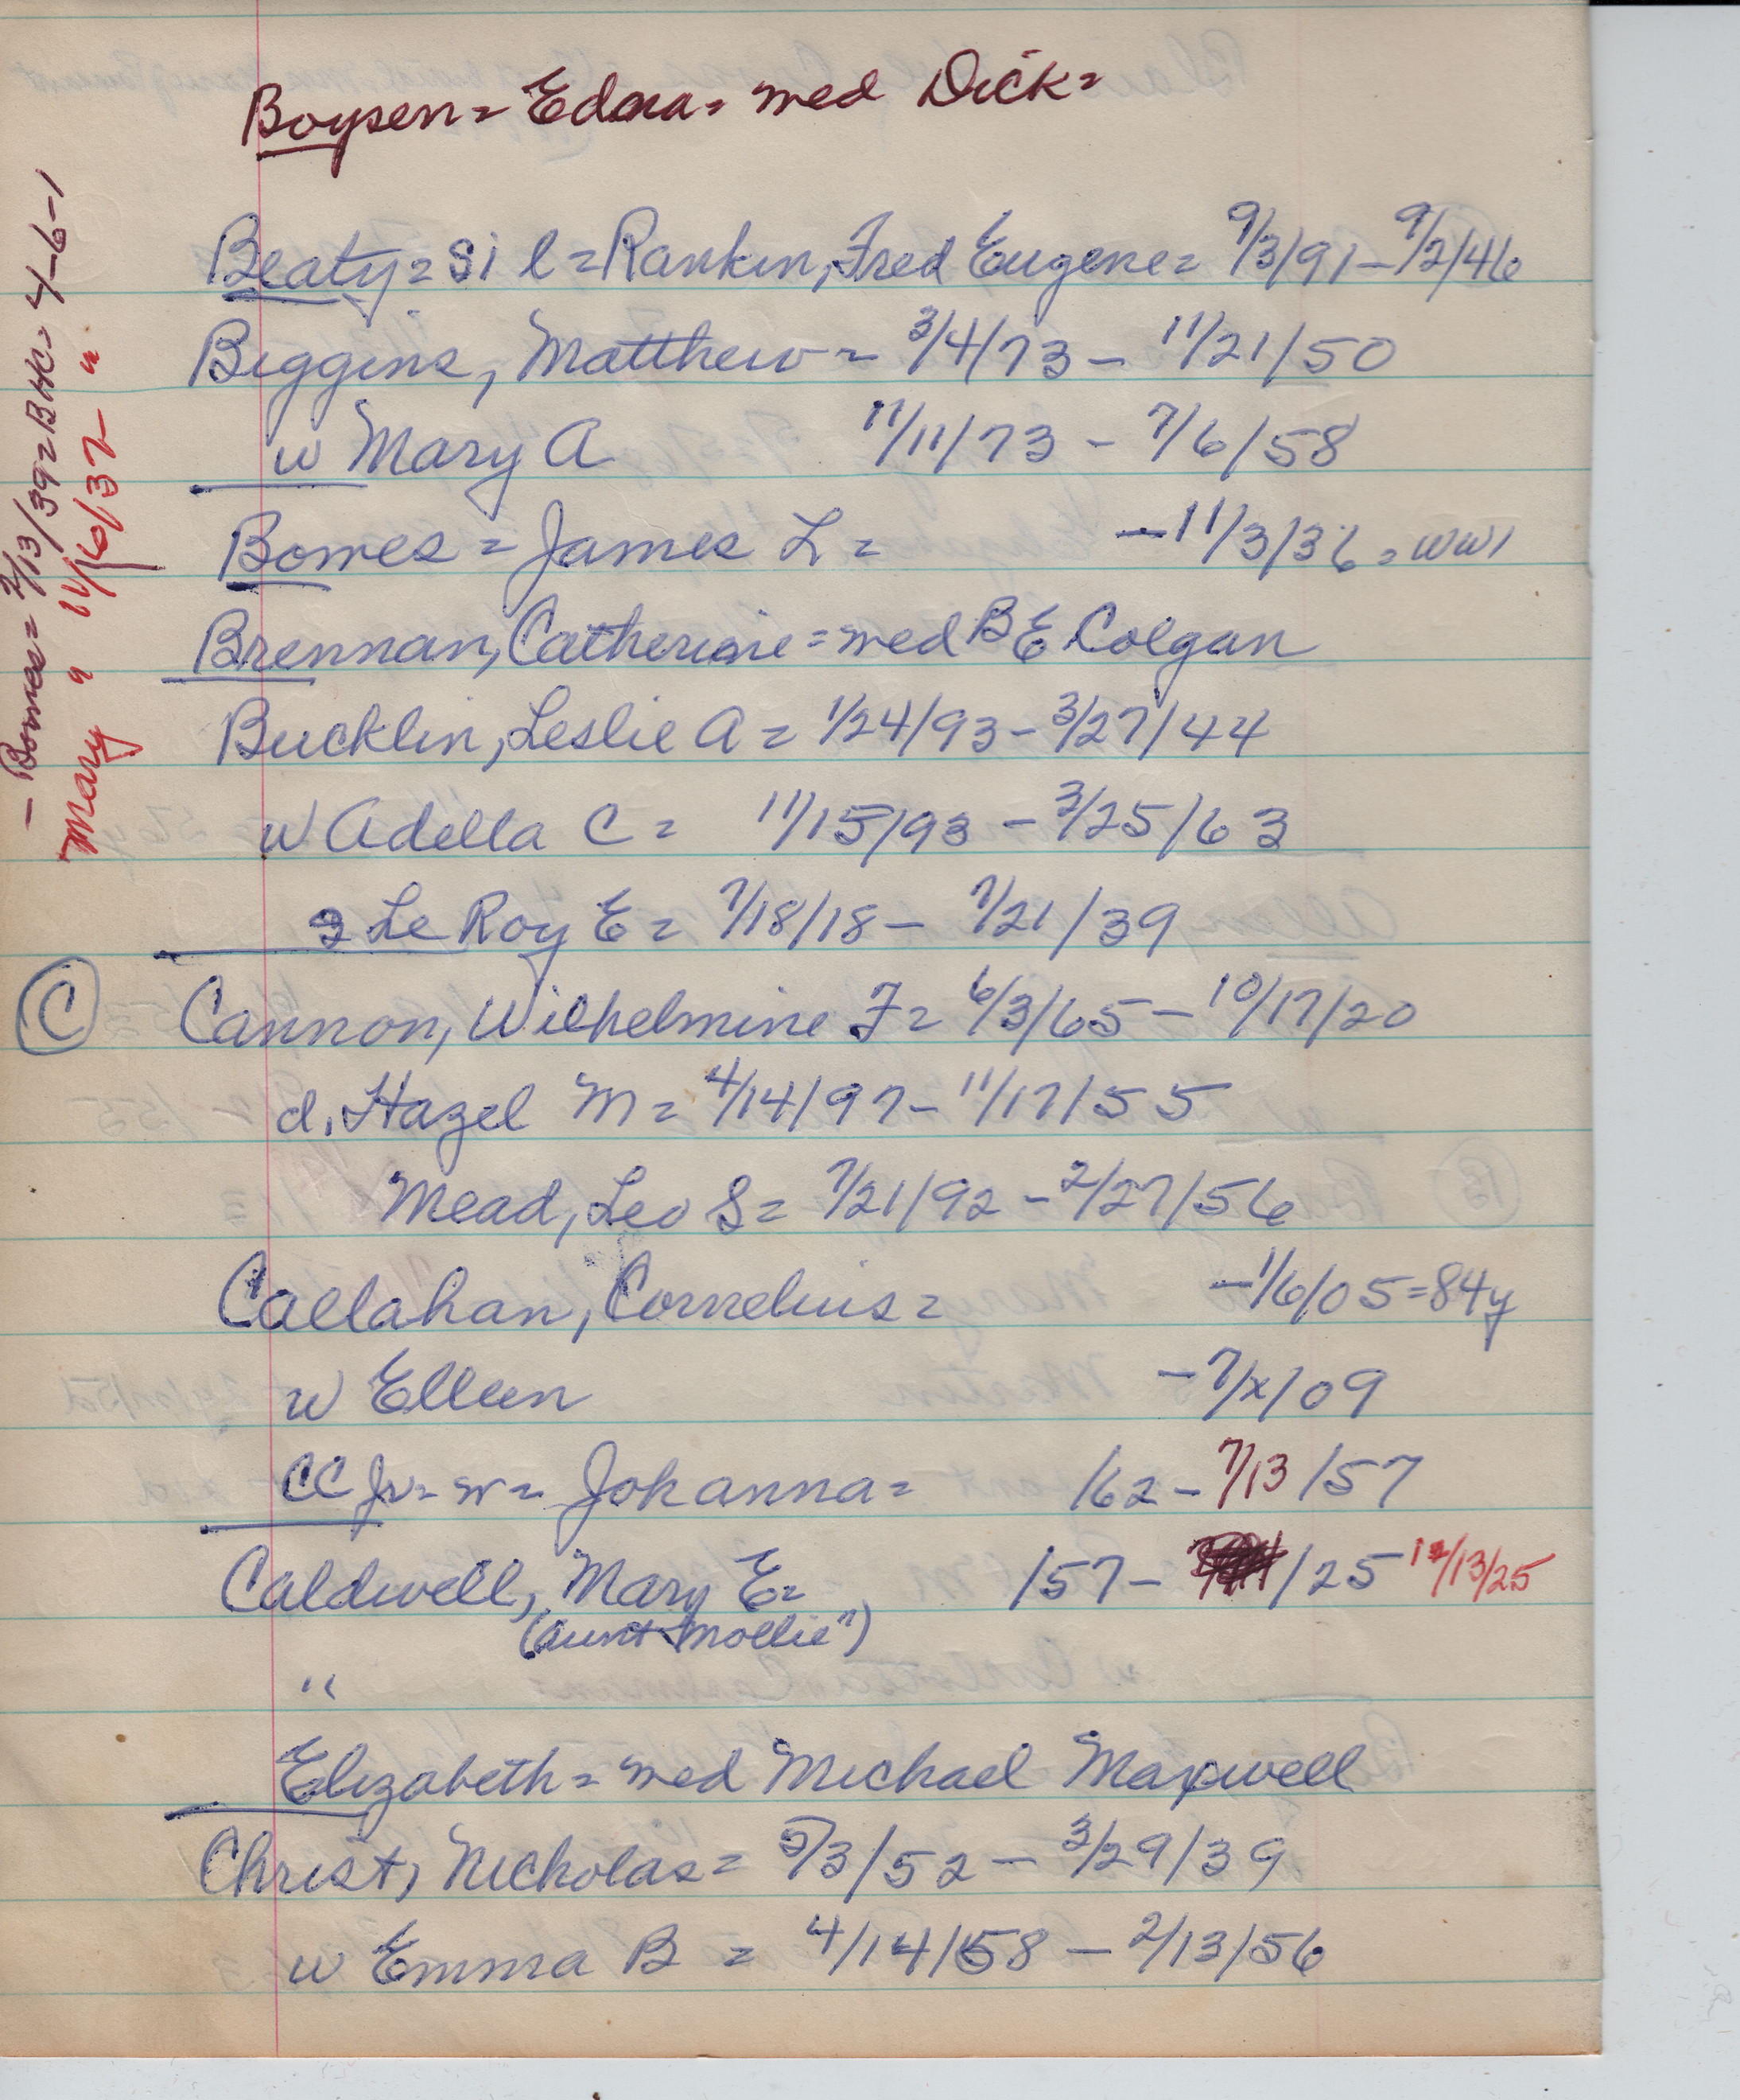 Boysen = Edna = med Dick =
Beaty = Si l = Rankin, Fred Eugene = 9/3/91 - 9/2/46
Biggins, Matthew = 3/4/73 - 11/21/50
w Mary A 11/11/73 - 7/6/58
Bowes = James L = - 11/3/36 = WW1
Brennan, Catherine = med B E Colgan
Bucklin, Leslie A = 1/24/93 - 3/27/44
w Adella C = 11/15/93 - 3/25/63
s Le Roy E = 7/18/18 - 7/21/39
C Cannon, Wilhelmine F = 6/3/65 - 10/17/20
d. Hazel M = 4/14/97 - 11/17/55
Mead, Leo S = 7/21/92 - 2/27/56
Callahan, Cornelius = - 1/6/05 = 84y
w Ellen - 7/x/09
CC Jr = w = Johanna = /62 - 7/13/57
Caldwell, Mary E = /57 - /25 12/13/25
(Aunt Mollie")
"
Elizabeth = med Michael Maxwell
Christ, Nicholas = 5/3/52 - 3/29/39
w Emma B = 4/14/58 - 2/13/56
- Bowes = 2/13/39 = BHC = 4-6-1
Mary " 11/16/37 - "